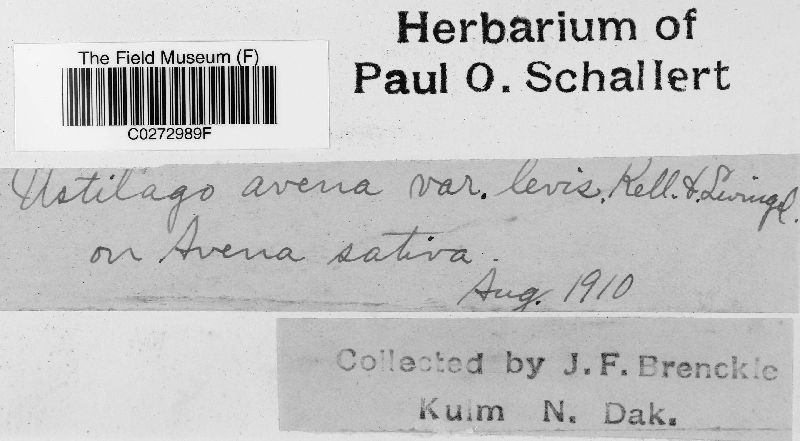 Herbarium of
Paul O. Schallert
The Field Museum (F)
C0272989F
Ustilago avena var. levis, Kell. & Swingl.
on Avena sativa.
Aug. 1910
Collected by J. F. Brenckle
Kulm N. Dak.